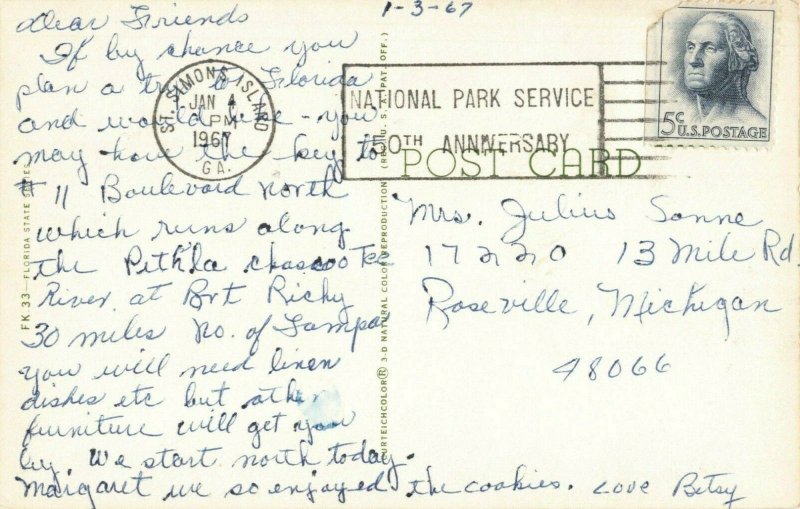 1-3-67
Dear Friends
If by chance you
plan a trip to Florida
and would like - you
may have the key to
# 11 Boulevard North
which runs along
the Pithla chascoo Tee
River at Port Richy
30 miles no. of Tampa
you will need linen
dishes etc but other
furniture will get you
by We start north today.
Margaret we so enjoyed the cookies. Love Betsy
ST. SIMONS ISLAND
JAN 4
PM
1967
GA.
NATIONAL PARK SERVICE
50TH ANNIVERSARY
5c U.S. POSTAGE
POST CARD
Mrs. Julius Sonne
17220 13 Mile Rd.
Roseville, Michigan
48066
FK 33—FLORIDA STATE
CURTEICHCOLOR® 3-D NATURAL COLOR REPRODUCTION (REG. U. S. A. PAT. OFF.)